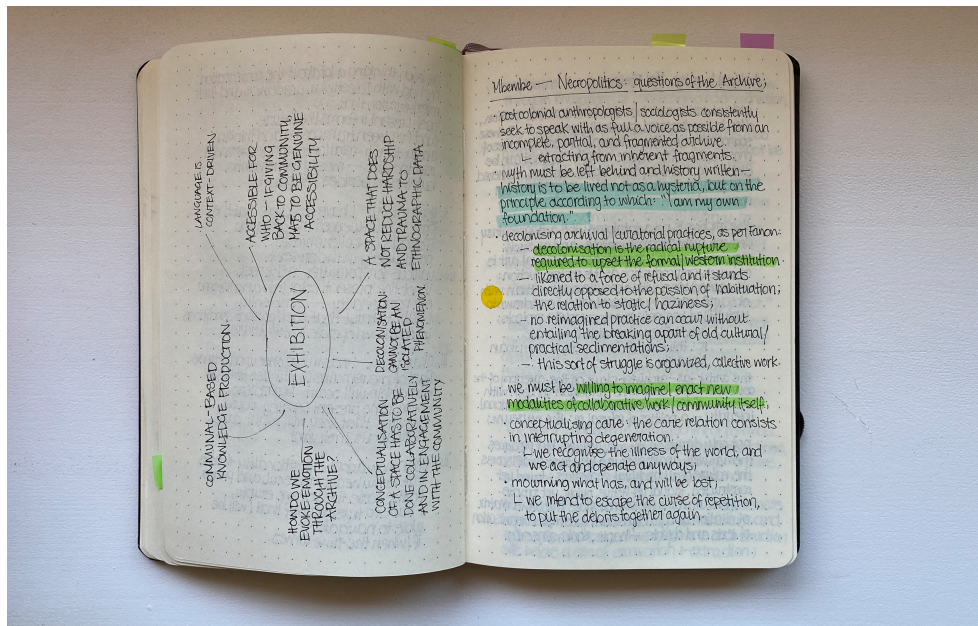 LANGUAGE IS
CONTEXT-DRIVEN.
ACCESSIBLE FOR
WHO - IF GIVING
BACK TO COMMUNITY,
HAS TO BE GENUINE
ACCESSIBILITY
A SPACE THAT DOES
NOT REDUCE HARDSHIP
AND TRAUMA TO
ETHNOGRAPHIC DATA.
EXHIBITION
COMMUNAL-BASED
KNOWLEDGE PRODUCTION.
DECOLONISATION:
CANNOT BE AN
ISOLATED
PHENOMENON
HOW DO WE
EVOKE EMOTION
THROUGH THE
ARCHIVE?
CONCEPTUALISATION
OF A SPACE HAS TO BE
DONE COLLABORATIVELY
AND IN ENGAGEMENT
WITH THE COMMUNITY
Mbembe — Necropolitics: questions of the Archive;
· postcolonial anthropologists/sociologists consistently
seek to speak with as full a voice as possible from an
incomplete, partial, and fragmented archive.
↳ extracting from inherent fragments.
· myth must be left behind and history written —
history is to be lived not as a hysteria, but on the
principle according to which: "I am my own
foundation."
· decolonising archival/curatorial practices, as per Fanon:
- decolonisation is the radical rupture
required to upset the formal/western institution.
- likened to a force of refusal and it stands
directly opposed to the passion of habituation;
the relation to static/haziness;
- no reimagined practice can occur without
entailing the breaking apart of old cultural/
practical sedimentations;
- this sort of struggle is organized, collective work.
we must be willing to imagine/enact new
modalities of collaborative work/community itself;
· conceptualising care: the care relation consists
in interrupting degeneration.
↳ we recognise the illness of the world, and
we act and operate anyways;
· mourning what has, and will be lost;
↳ we intend to escape the curse of repetition,
to put the debris together again.